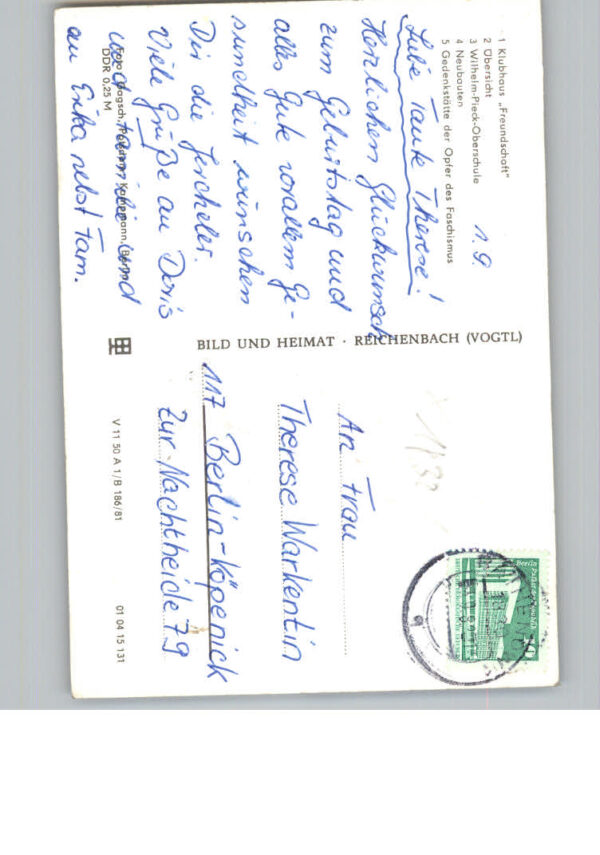 1 Klubhaus „Freundschaft"
2 Übersicht
3 Wilhelm-Pieck-Oberschule
4 Neubauten
5 Gedenkstätte der Opfer des Faschismus
1.9.
Liebe Tante Therese!
Herzlichen Glückwunsch
zum Geburtstag und
alles Gute vorallem Ge-
sundheit wünschen
Dir die Jercheler
Viele Grüße an Doris
und
an Erika nebst Fam.
DDR 0,25 M
BILD UND HEIMAT · REICHENBACH (VOGTL)
V 11 50 A 1/B 186/81
01 04 15 131
An Frau
Therese Warkentin
117 Berlin-Köpenick
Zur Nachtheide 79
Berlin
10